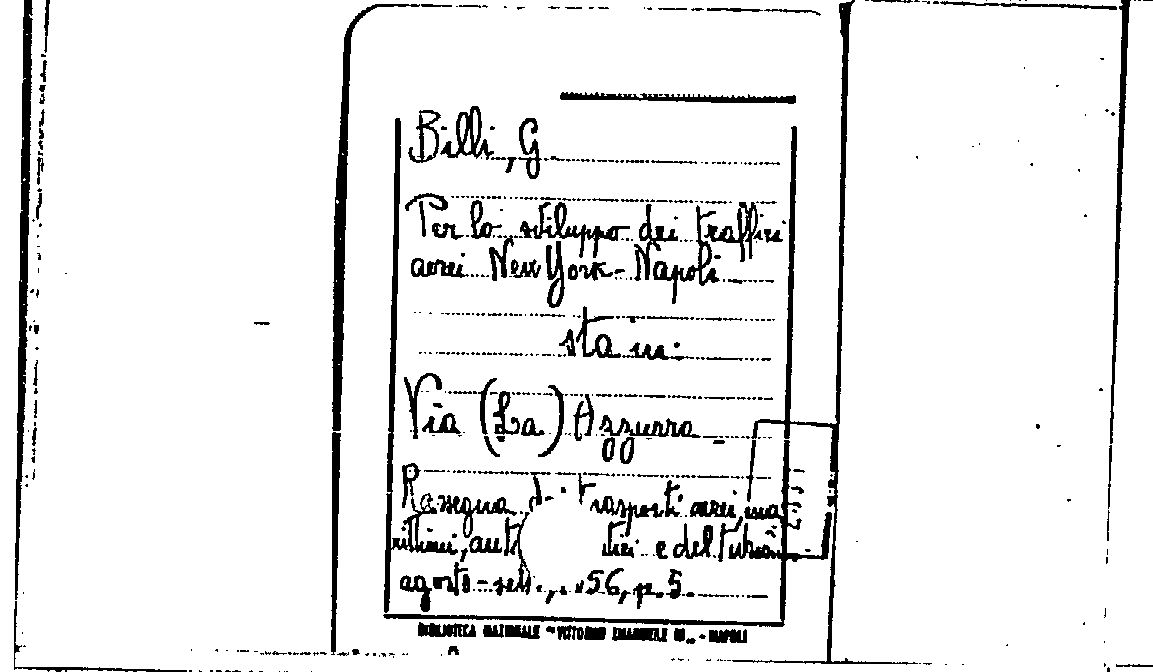 Billi, G.
Per lo sviluppo dei traffici
aerei New York - Napoli
sta in:
Via (La) Azzurra
Rassegna di trasporti aerei, ma
rittimi, aut tici e del turis
agosto-sett., 56, p. 5.
BIBLIOTECA NAZIONALE "VITTORIO EMANUELE III" - NAPOLI